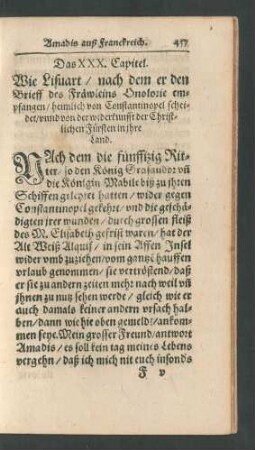 Amadis auß Franckreich. 457
Das XXX. Capitel.
Wie Lisuart / nach dem er den
Brieff des Fräwleins Onolorie em-
pfangen / heimlich von Constantinopel schei-
det / vnnd von der widerkunfft der Christ-
lichen Fürsten in jhre
Land.
NAch dem die fünffizig Rit-
ter / so den König Grasandor vñ
die Königin Mabile biß zu jhren
Schiffen geleytet hatten / wider gegen
Constantinopel gekehrt / vnd die geschä-
digten jrer wunden / durch grossen fleiß
des M. Elisabeth gefrist waren / hat der
Alt Weiß Alquif / in sein Affen Insel
wider vmb zuziehen / vom gantzẽ hauffen
vrlaub genommen / sie vertröstend / daß
er sie zu andern zeiten mehr nach weil vñ
jhnen zu nutz sehen werde / gleich wie er
auch damals keiner andern vrsach hal-
ben / dann wie hie oben gemeldt / ankom-
men seye. Mein grosser Freund / antwort
Amadis / es soll kein tag meines Lebens
vergehn / daß ich mich nit euch insonds
F v